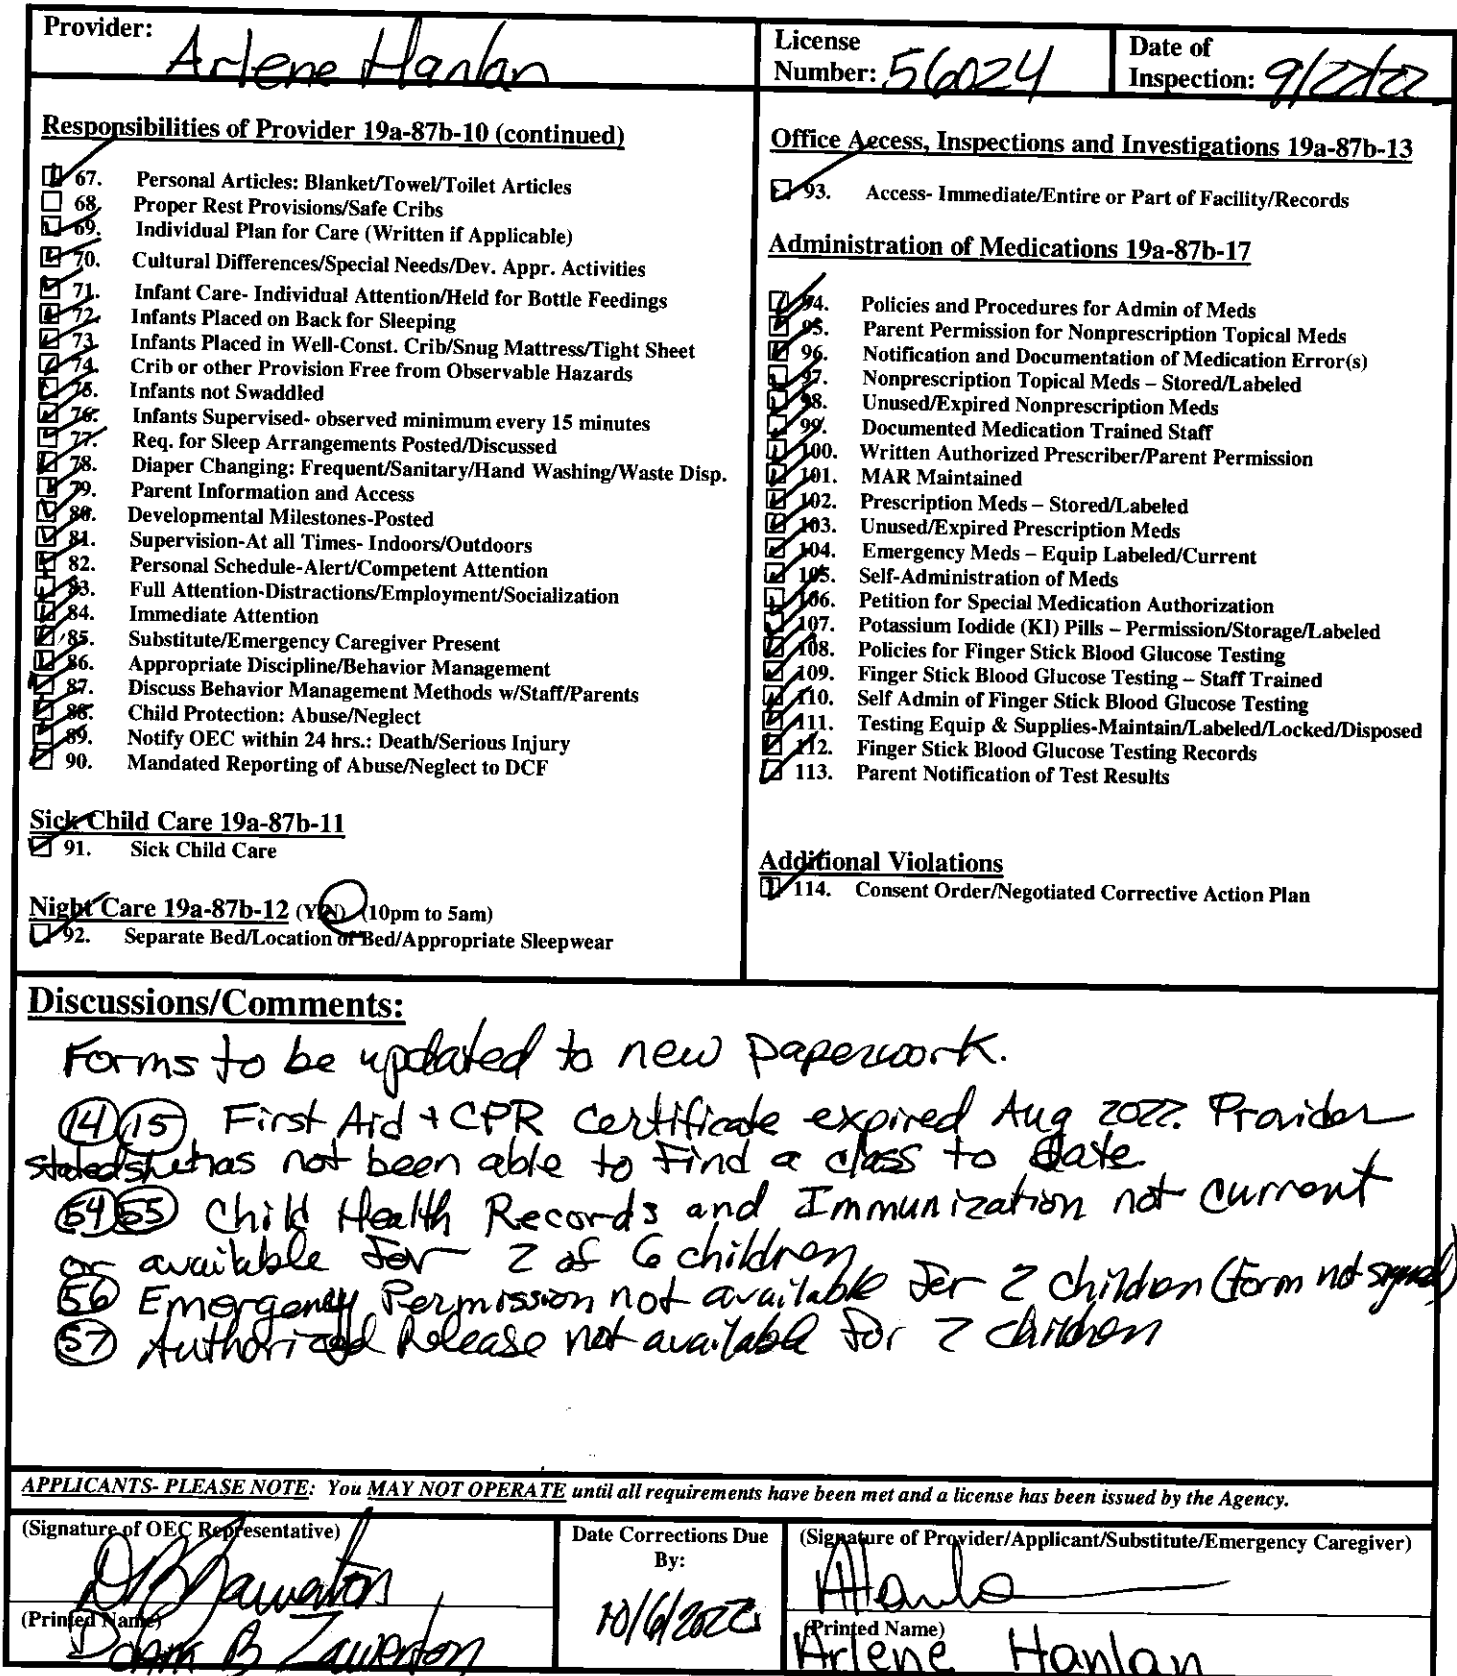 Provider: Arlene Hanlan
License Number: 56024
Date of Inspection: 9/22/22
Responsibilities of Provider 19a-87b-10 (continued)
67. Personal Articles: Blanket/Towel/Toilet Articles
68. Proper Rest Provisions/Safe Cribs
69. Individual Plan for Care (Written if Applicable)
70. Cultural Differences/Special Needs/Dev. Appr. Activities
71. Infant Care- Individual Attention/Held for Bottle Feedings
72. Infants Placed on Back for Sleeping
73. Infants Placed in Well-Const. Crib/Snug Mattress/Tight Sheet
74. Crib or other Provision Free from Observable Hazards
75. Infants not Swaddled
76. Infants Supervised- observed minimum every 15 minutes
77. Req. for Sleep Arrangements Posted/Discussed
78. Diaper Changing: Frequent/Sanitary/Hand Washing/Waste Disp.
79. Parent Information and Access
80. Developmental Milestones-Posted
81. Supervision-At all Times- Indoors/Outdoors
82. Personal Schedule-Alert/Competent Attention
83. Full Attention-Distractions/Employment/Socialization
84. Immediate Attention
85. Substitute/Emergency Caregiver Present
86. Appropriate Discipline/Behavior Management
87. Discuss Behavior Management Methods w/Staff/Parents
88. Child Protection: Abuse/Neglect
89. Notify OEC within 24 hrs.: Death/Serious Injury
90. Mandated Reporting of Abuse/Neglect to DCF
Sick Child Care 19a-87b-11
91. Sick Child Care
Night Care 19a-87b-12 (Y/N) (10pm to 5am)
92. Separate Bed/Location of Bed/Appropriate Sleepwear
Office Access, Inspections and Investigations 19a-87b-13
93. Access- Immediate/Entire or Part of Facility/Records
Administration of Medications 19a-87b-17
94. Policies and Procedures for Admin of Meds
95. Parent Permission for Nonprescription Topical Meds
96. Notification and Documentation of Medication Error(s)
97. Nonprescription Topical Meds – Stored/Labeled
98. Unused/Expired Nonprescription Meds
99. Documented Medication Trained Staff
100. Written Authorized Prescriber/Parent Permission
101. MAR Maintained
102. Prescription Meds – Stored/Labeled
103. Unused/Expired Prescription Meds
104. Emergency Meds – Equip Labeled/Current
105. Self-Administration of Meds
106. Petition for Special Medication Authorization
107. Potassium Iodide (KI) Pills – Permission/Storage/Labeled
108. Policies for Finger Stick Blood Glucose Testing
109. Finger Stick Blood Glucose Testing – Staff Trained
110. Self Admin of Finger Stick Blood Glucose Testing
111. Testing Equip & Supplies-Maintain/Labeled/Locked/Disposed
112. Finger Stick Blood Glucose Testing Records
113. Parent Notification of Test Results
Additional Violations
114. Consent Order/Negotiated Corrective Action Plan
Discussions/Comments:
Forms to be updated to new paperwork.
14 15 First Aid + CPR certificate expired Aug 2022. Provider
stated she has not been able to find a class to date.
54 55 Child Health Records and Immunization not current
or available for 2 of 6 children
56 Emergency Permission not available for 2 children (form not signed)
57 Authorized Release not available for 2 children
APPLICANTS- PLEASE NOTE: You MAY NOT OPERATE until all requirements have been met and a license has been issued by the Agency.
(Signature of OEC Representative)
(Printed Name)
B
Date Corrections Due
By:
10/6/2022
(Signature of Provider/Applicant/Substitute/Emergency Caregiver)
AHanlan
(Printed Name)
Arlene Hanlan